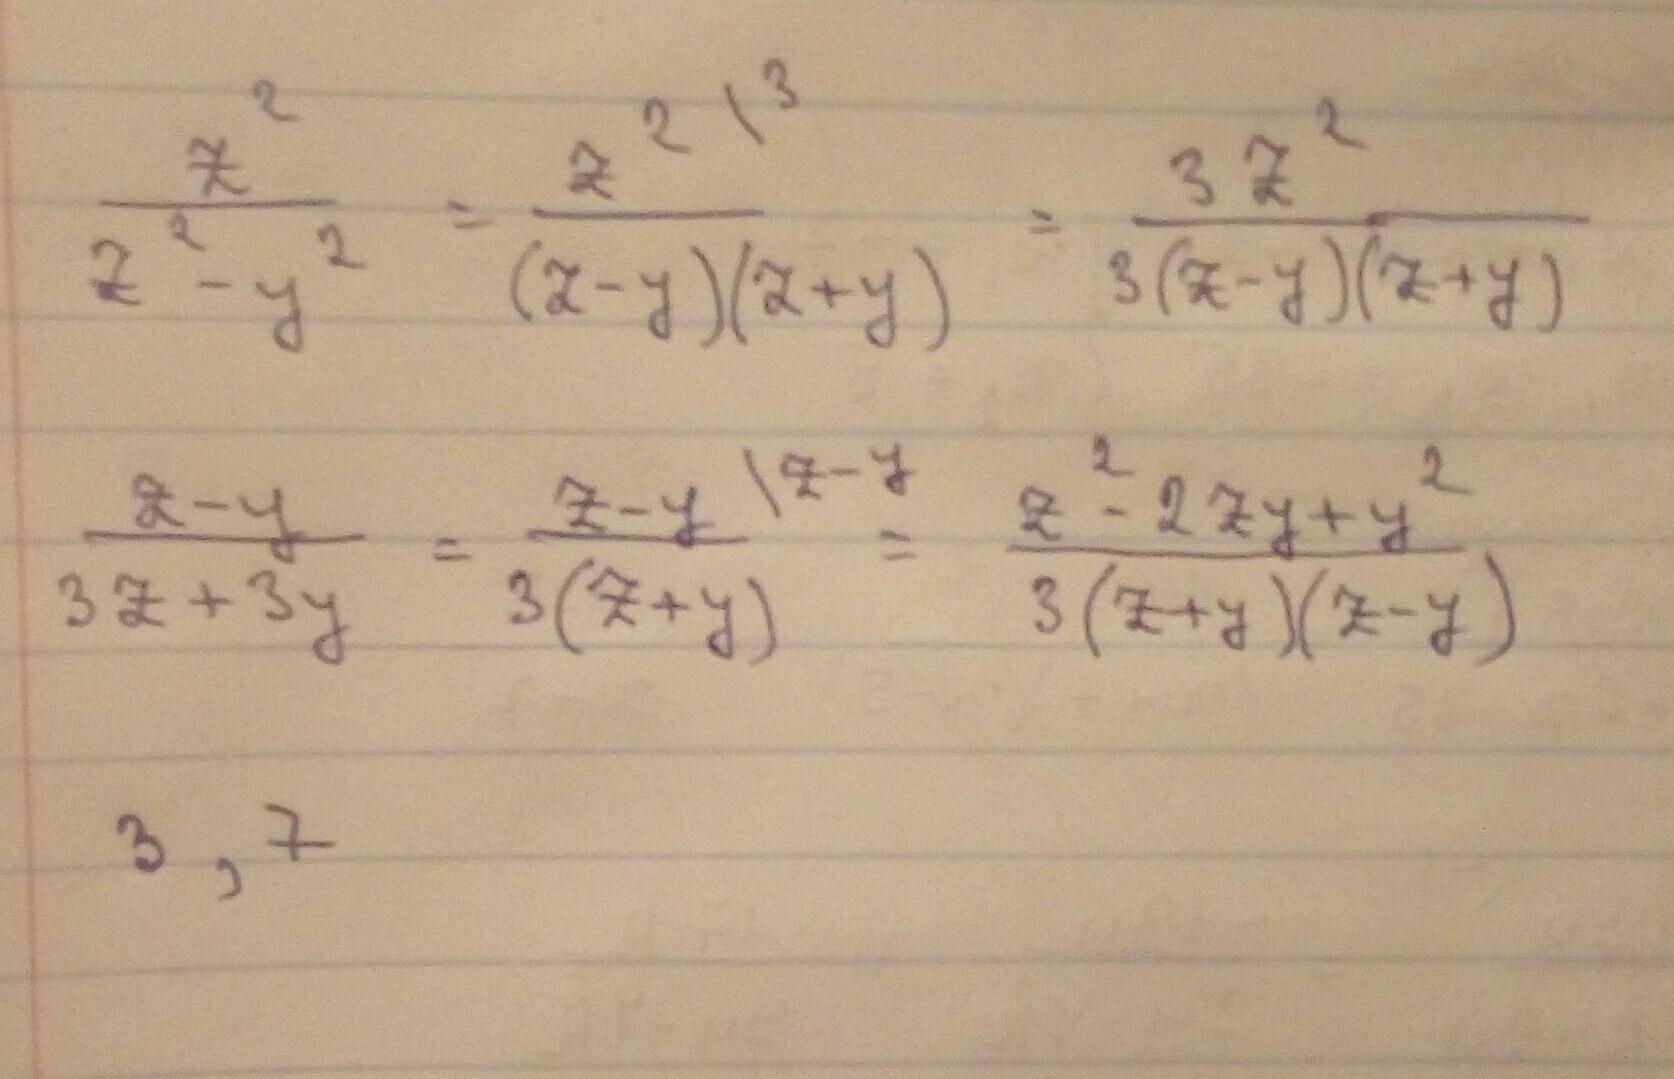 z²/(z² - y²) = z² \3/((z-y)(z+y)) = 3z²/(3(z-y)(z+y))
(z-y)/(3z+3y) = (z-y) \z-y/(3(z+y)) = (z² - 2zy + y²)/(3(z+y)(z-y))
3, 7